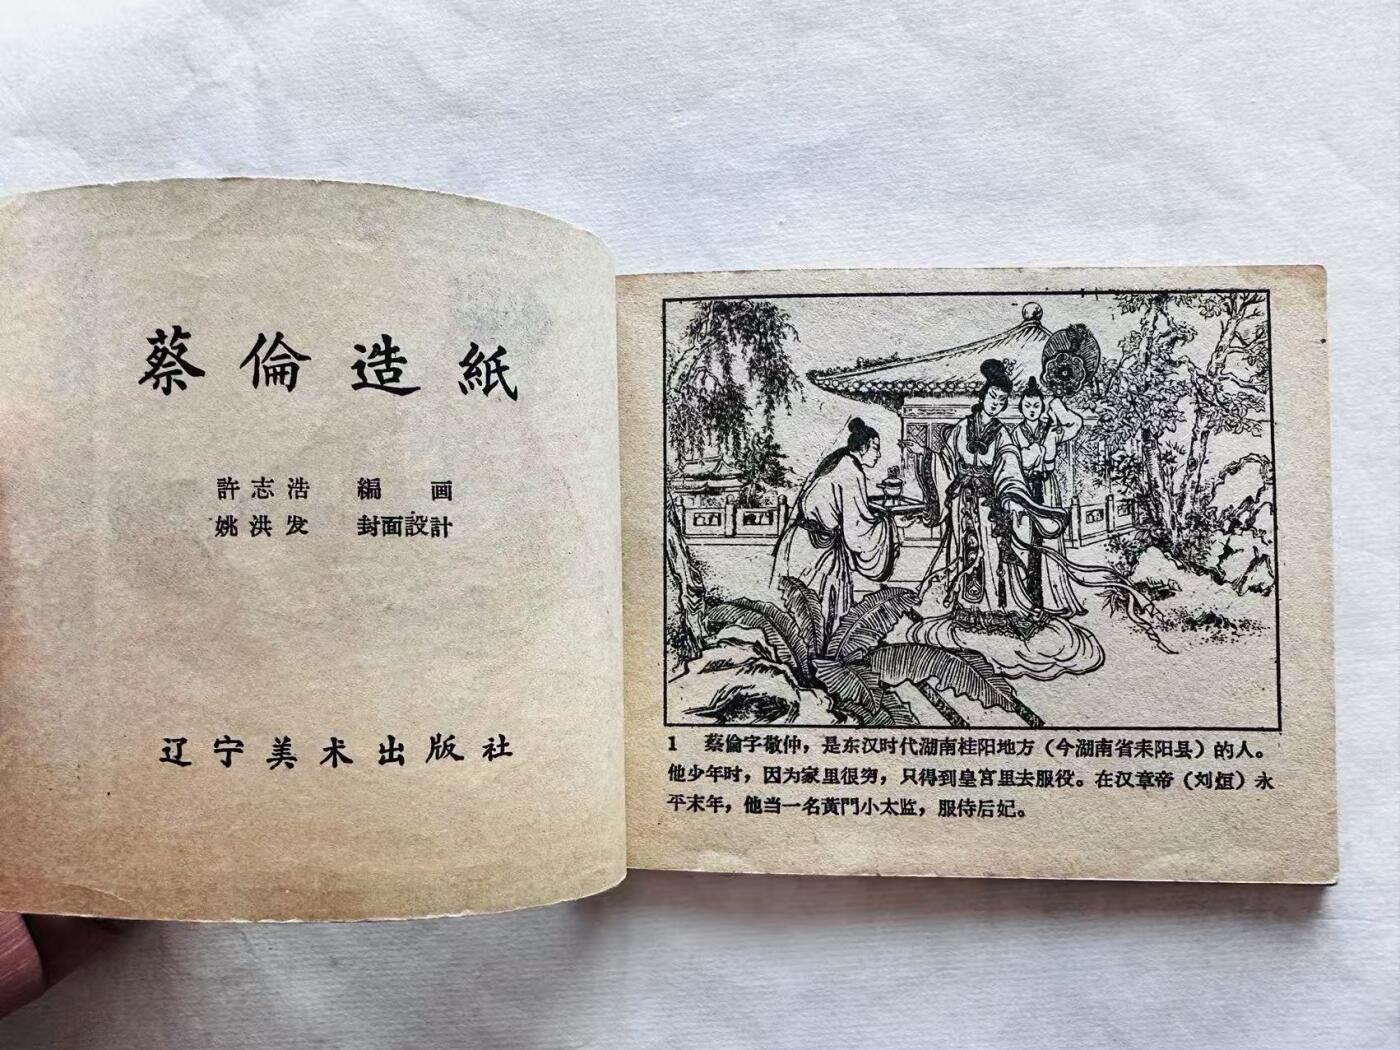 蔡倫造紙
許志浩 編画
姚洪发 封面設計
辽宁美术出版社
1 蔡倫字敬仲，是东汉时代湖南桂阳地方（今湖南省耒阳县）的人。
他少年时，因为家里很穷，只得到皇宫里去服役。在汉章帝（刘烜）永
平末年，他当一名黄門小太监，服侍后妃。